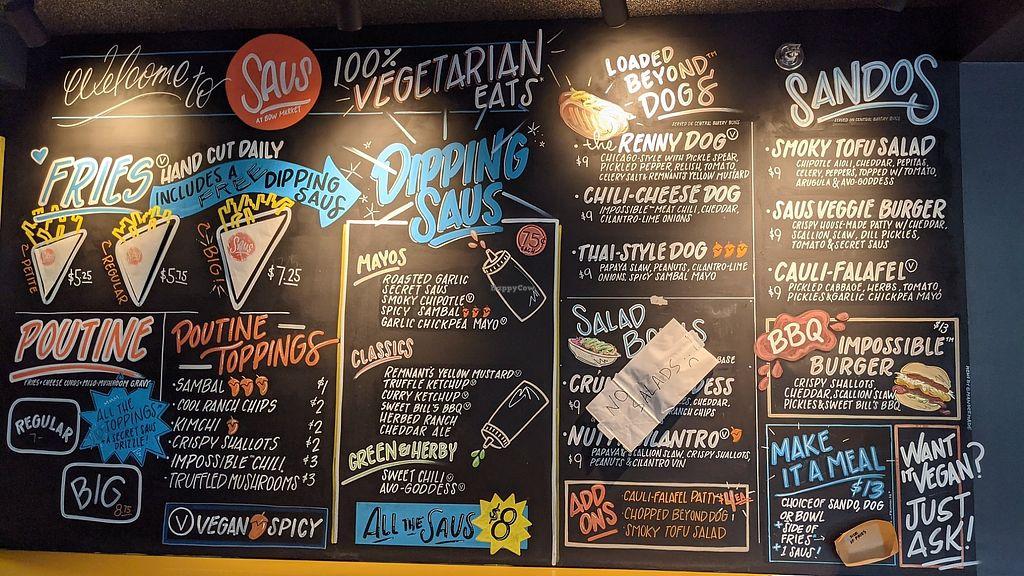 Welcome to
SAUS
AT BOW MARKET
100%
VEGETARIAN
EATS
FRIES Ⓥ
HAND CUT DAILY
INCLUDES A
FREE DIPPING
SAUS
PETITE
$5.25
REGULAR
$5.75
BIG!
$7.25
POUTINE
FRIES + CHEESE CURDS + MISO-MUSHROOM GRAVY
REGULAR
7-
ALL THE
TOPPINGS
SECRET SAUS
DRIZZLE!
BIG
8.75
POUTINE
TOPPINGS
·SAMBAL $1
·COOL RANCH CHIPS $2
·KIMCHI $2
·CRISPY SHALLOTS $2
·IMPOSSIBLE CHILI $3
·TRUFFLED MUSHROOMS $3
Ⓥ VEGAN SPICY
DIPPING
SAUS
.75
MAYOS
ROASTED GARLIC
SECRET SAUS
SMOKY CHIPOTLE Ⓥ
SPICY SAMBAL
GARLIC CHICKPEA MAYO Ⓥ
CLASSICS
REMNANT'S YELLOW MUSTARD Ⓥ
TRUFFLE KETCHUP Ⓥ
CURRY KETCHUP Ⓥ
SWEET BILL'S BBQ Ⓥ
HERBED RANCH
CHEDDAR ALE
GREEN & HERBY
SWEET CHILI Ⓥ
AVO-GODDESS Ⓥ
ALL THE SAUS $8
LOADED
BEYOND™
DOGS
SERVED ON CENTRAL BAKERY BUNS
·the RENNY DOG Ⓥ
$9 CHICAGO-STYLE WITH PICKLE SPEAR,
PICKLED PEPPER, RELISH, TOMATO,
CELERY SALT & REMNANT'S YELLOW MUSTARD
·CHILI-CHEESE DOG
$9 IMPOSSIBLE™ MEAT CHILI, CHEDDAR,
CILANTRO-LIME ONIONS
·THAI-STYLE DOG
$9 PAPAYA SLAW, PEANUTS, CILANTRO-LIME
ONIONS, SPICY SAMBAL MAYO
SALAD
NO
SALADS
BASE
DESS
$9 CHEDDAR,
RANCH CHIPS
CILANTRO Ⓥ
$9 PAPAYA & SCALLION SLAW, CRISPY SHALLOTS,
PEANUTS & CILANTRO VIN
ADD
ONS
·CAULI-FALAFEL PATTY $4 EA
·CHOPPED BEYOND DOG
·SMOKY TOFU SALAD
SANDOS
SERVED ON CENTRAL BAKERY BUNS
·SMOKY TOFU SALAD
$9 CHIPOTLE AIOLI, CHEDDAR, PEPITAS,
CELERY, PEPPERS, TOPPED W/ TOMATO,
ARUGULA & AVO-GODDESS
·SAUS VEGGIE BURGER
$9 CRISPY HOUSE-MADE PATTY W/ CHEDDAR,
SCALLION SLAW, DILL PICKLES,
TOMATO & SECRET SAUS
·CAULI-FALAFEL Ⓥ
$9 PICKLED CABBAGE, HERBS, TOMATO,
PICKLES & GARLIC CHICKPEA MAYO
BBQ
$13
IMPOSSIBLE™
BURGER
CRISPY SHALLOTS,
CHEDDAR, SCALLION SLAW,
PICKLES & SWEET BILL'S BBQ
MAKE
IT A MEAL
$13
CHOICE OF SANDO, DOG
OR BOWL
+ SIDE OF
FRIES
+ 1 SAUS!
WANT
IT VEGAN?
JUST
ASK!
HappyCow